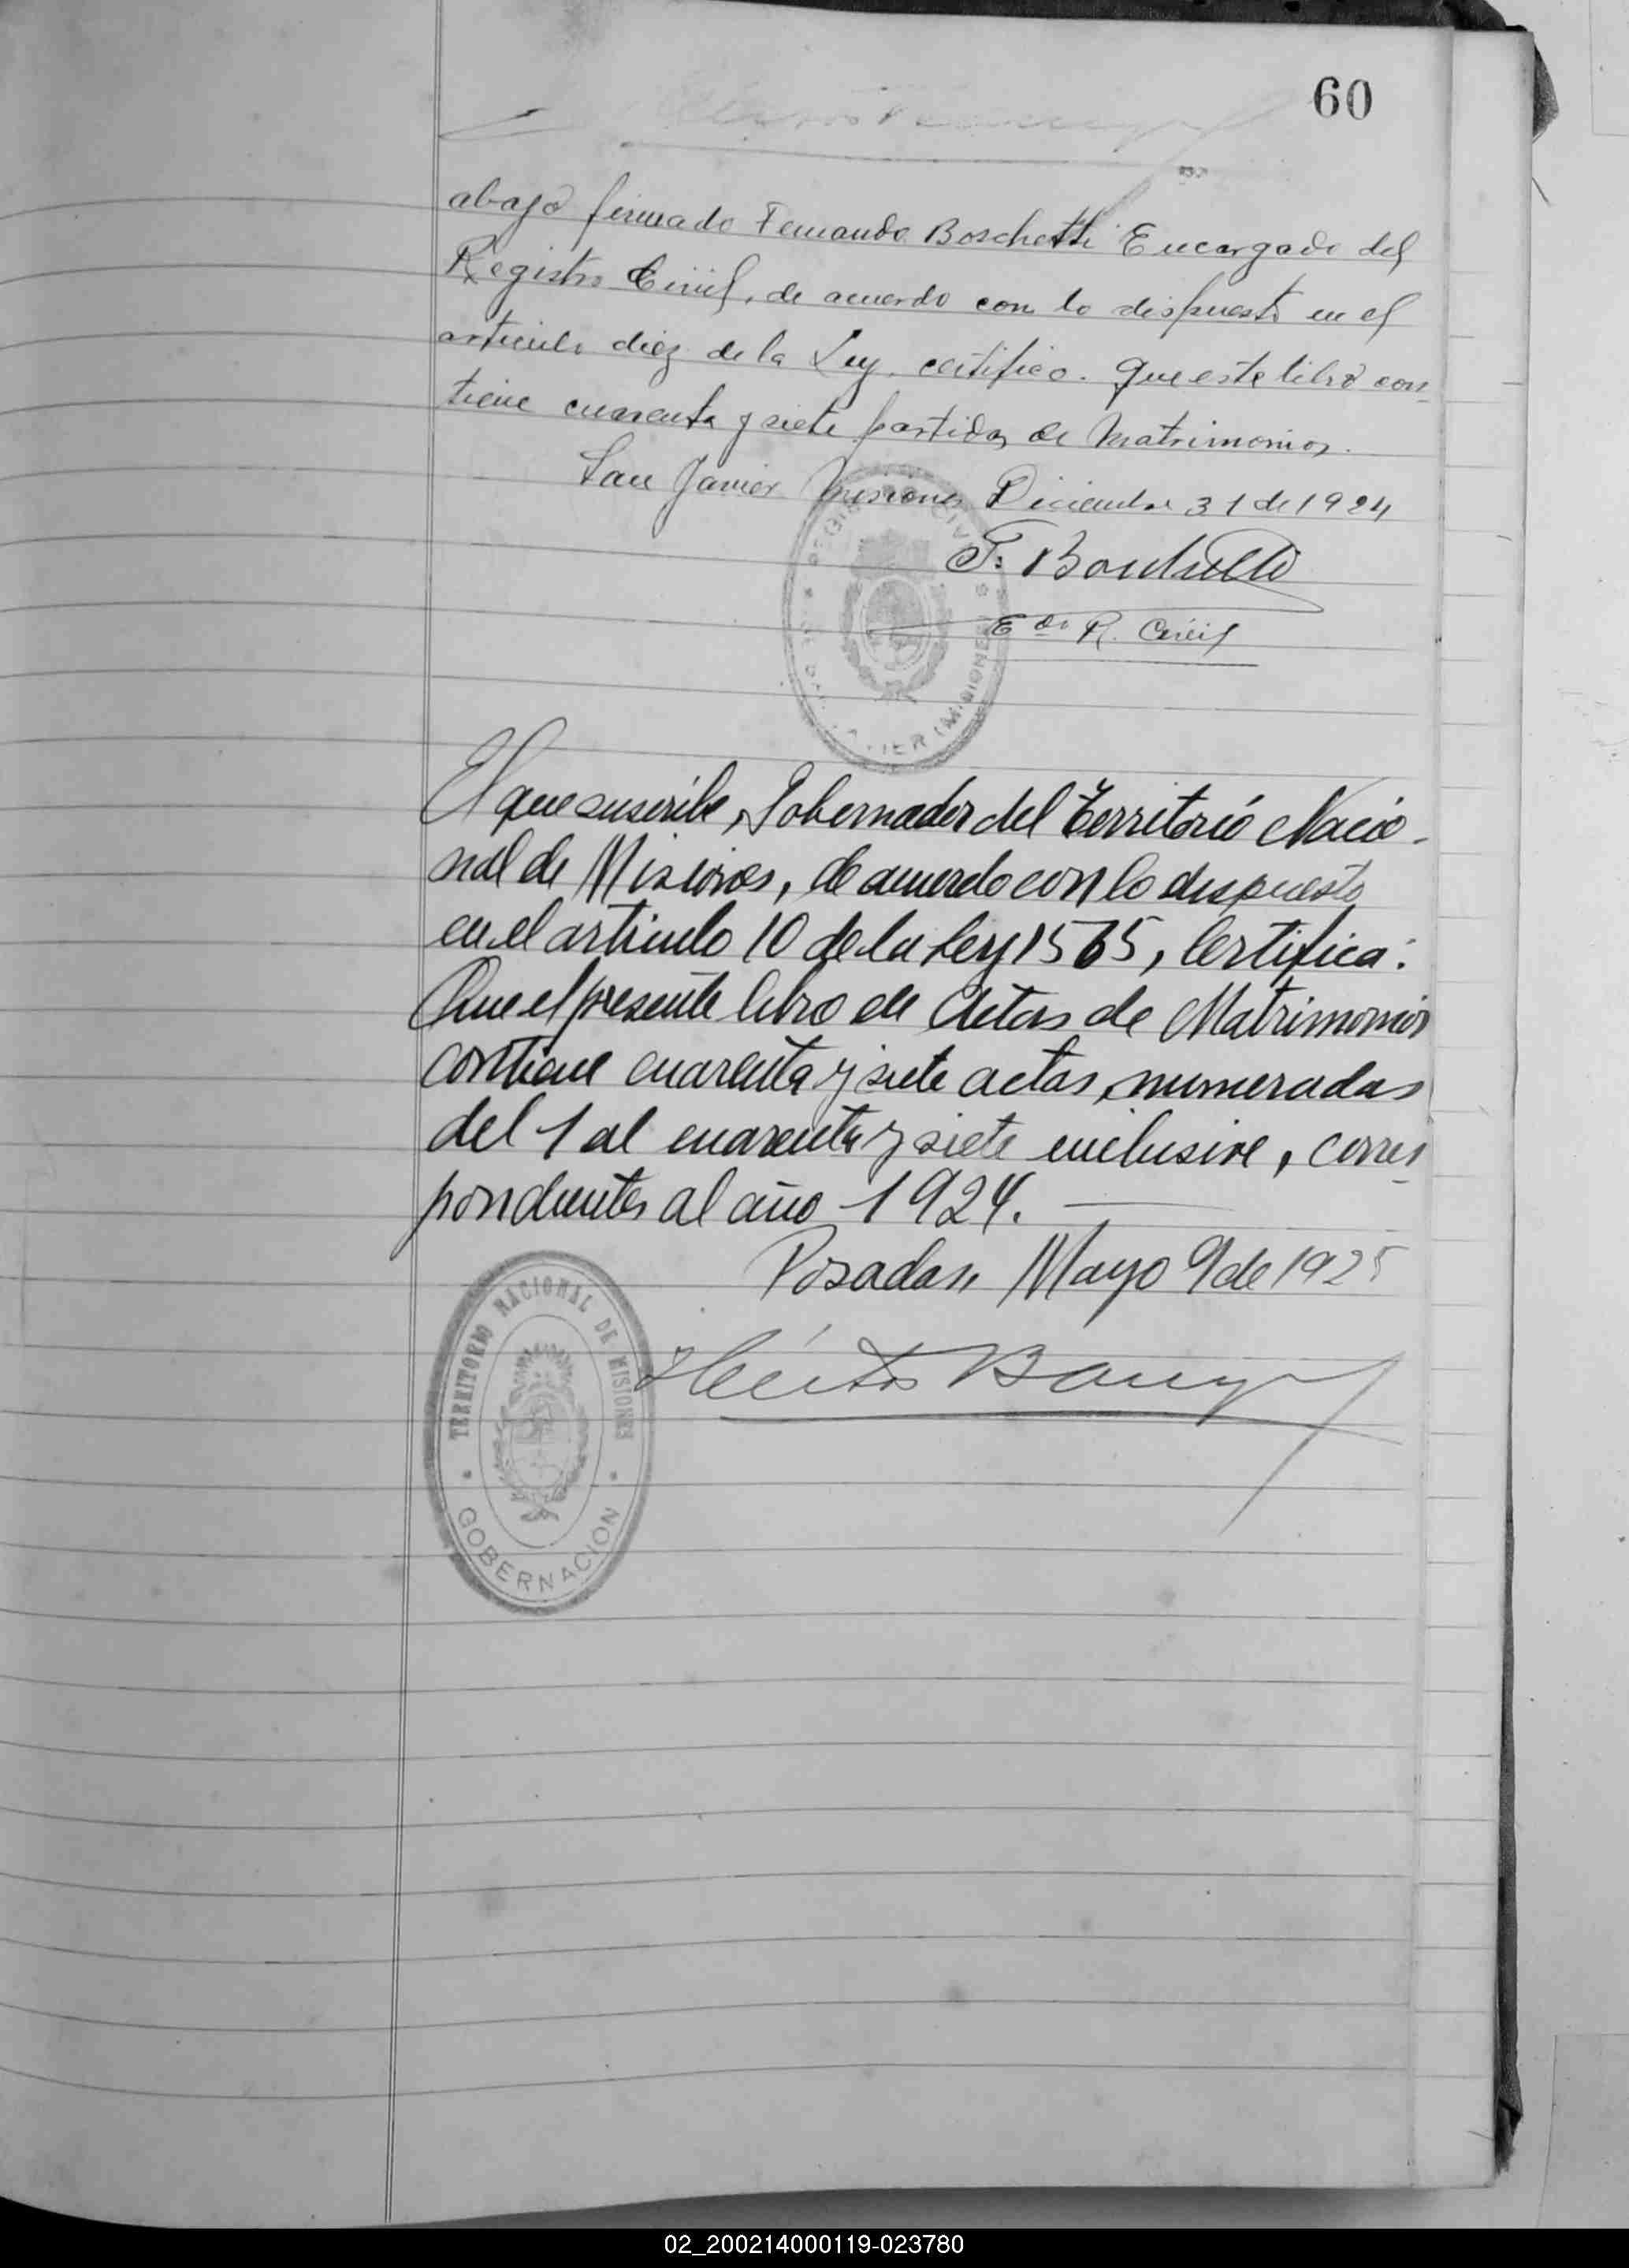 60
abajo firmado Fernando Boschetti Encargado del
Registro Civil, de acuerdo con lo dispuesto en el
articulo diez de la Ley. certifico. Que este libro con-
tiene cuarenta y siete partidas de Matrimonios.
San Javier Misiones Diciembre 31 de 1924
F. Boschetti
Edo R. Civil
REGISTRO CIVIL
JAVIER (MISIONES)
El que suscribe, Gobernador del Territorio Nacio-
nal de Misiones, de acuerdo con lo dispuesto
en el articulo 10 de la Ley 1565, Certifica:
Que el presente libro de Actas de Matrimonios
contiene cuarenta y siete actas, numeradas
del 1 al cuarenta y siete inclusive, corres-
pondientes al año 1924.
Posadas, Mayo 9 de 1925
TERRITORIO NACIONAL DE MISIONES
GOBERNACION
Héctor Barreyro
02_200214000119-023780